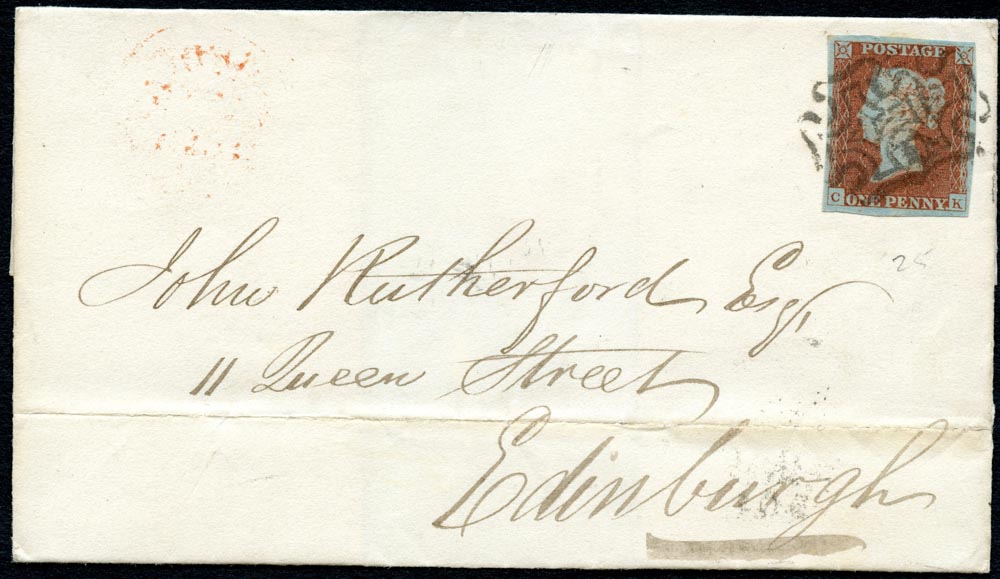 POSTAGE
C ONE PENNY K
John Rutherford Esqr,
11 Queen Street
Edinburgh
25